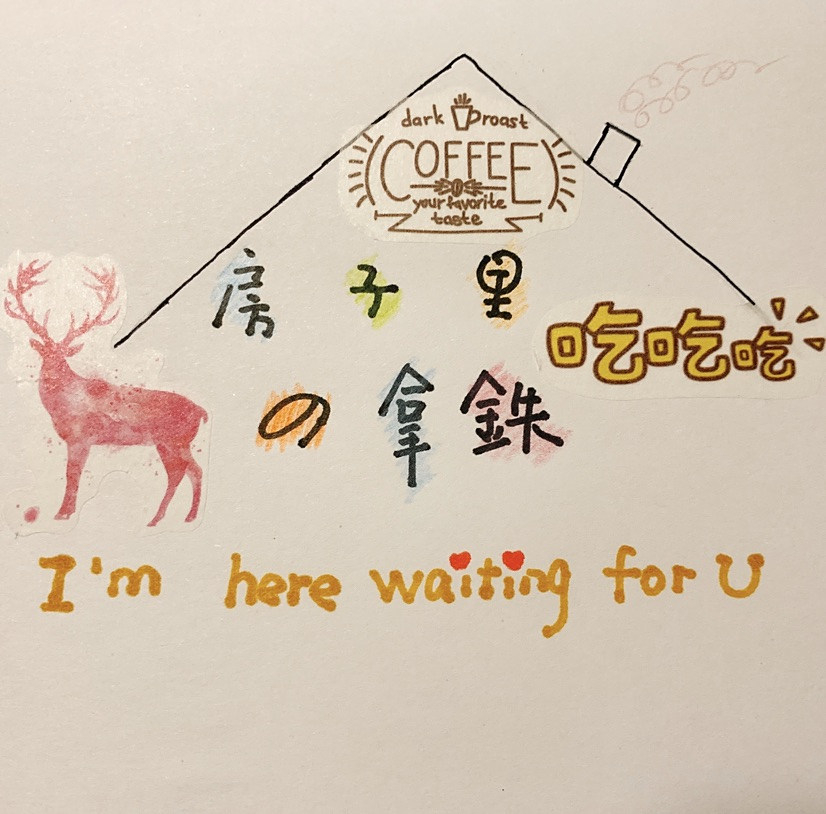 dark roast
COFFEE
your favorite
taste
房子里
吃吃吃
の拿鉄
I'm here waiting for U